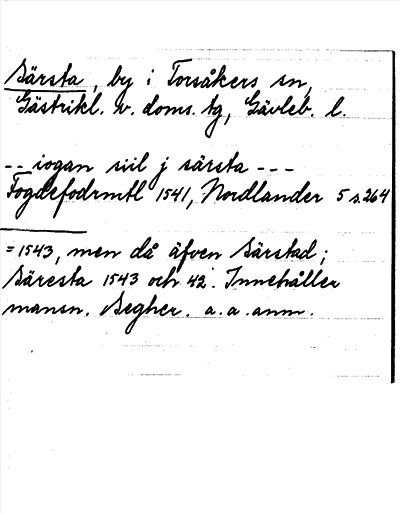 Särsta, by i Torsåkers sn,
Gästrikl. v. doms. tg, Gävleb. l.
-- iogan siil j särsta ---
Fogdefodrmtl 1541, Nordlander 5 s. 264
= 1543, men då äfven Särstad;
Säresta 1543 och 42. Innehåller
mansn. Segher. a. a. anm.